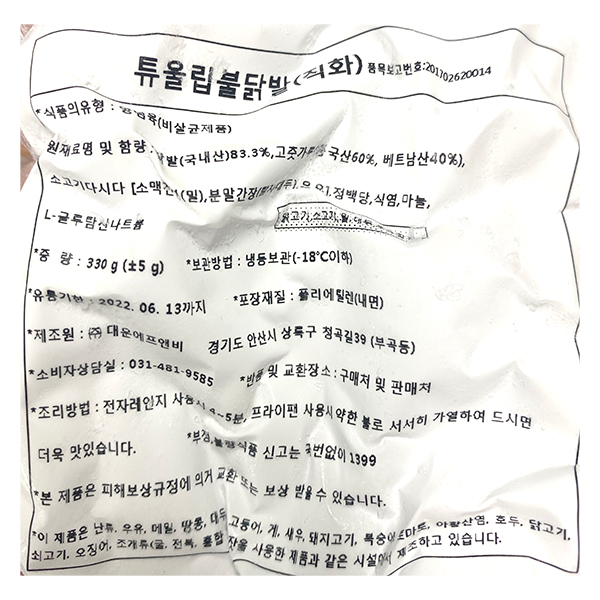 튜울립불닭발(직화) 품목보고번호:201702620014
*식품의유형 : 양념육(비살균제품)
원재료명 및 함량 : 닭발(국내산)83.3%,고춧가루(중국산60%, 베트남산40%),
소고기다시다 [소맥전분(밀),분말간장(탈지대두), 정백당,식염,마늘,
L-글루탐산나트륨
닭고기,소고기,밀,대두
*중 량 : 330 g (±5 g) *보관방법 : 냉동보관(-18℃이하)
*유통기한 : 2022. 06. 13까지 *포장재질 : 폴리에틸렌(내면)
*제조원 : ㈜ 대운에프앤비 경기도 안산시 상록구 청곡길39 (부곡동)
*소비자상담실 : 031-481-9585 *반품 및 교환장소 : 구매처 및 판매처
*조리방법 : 전자레인지 사용시 4~5분, 프라이팬 사용시약한 불로 서서히 가열하여 드시면
더욱 맛있습니다. *부정,불량식품 신고는 국번없이 1399
*본 제품은 피해보상규정에 의거 교환 또는 보상 받을 수 있습니다.
*이 제품은 난류, 우유, 메밀, 땅콩, 대두, 고등어, 게, 새우, 돼지고기, 복숭아, 토마토, 아황산염, 호두, 닭고기,
쇠고기, 오징어, 조개류(굴, 전복, 홍합), 잣을 사용한 제품과 같은 시설에서 제조하고 있습니다.